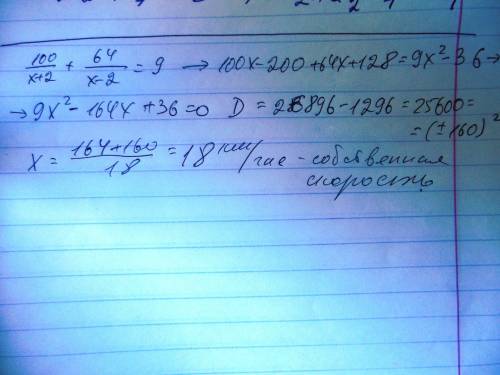 100/(x+2) + 64/(x-2) = 9 → 100x-200+64x+128=9x²-36 →
→ 9x²-164x+36=0 D = 26896-1296=25600=
=(±160)²
x = (164+160)/18 = 18 км/час - собственная
скорость